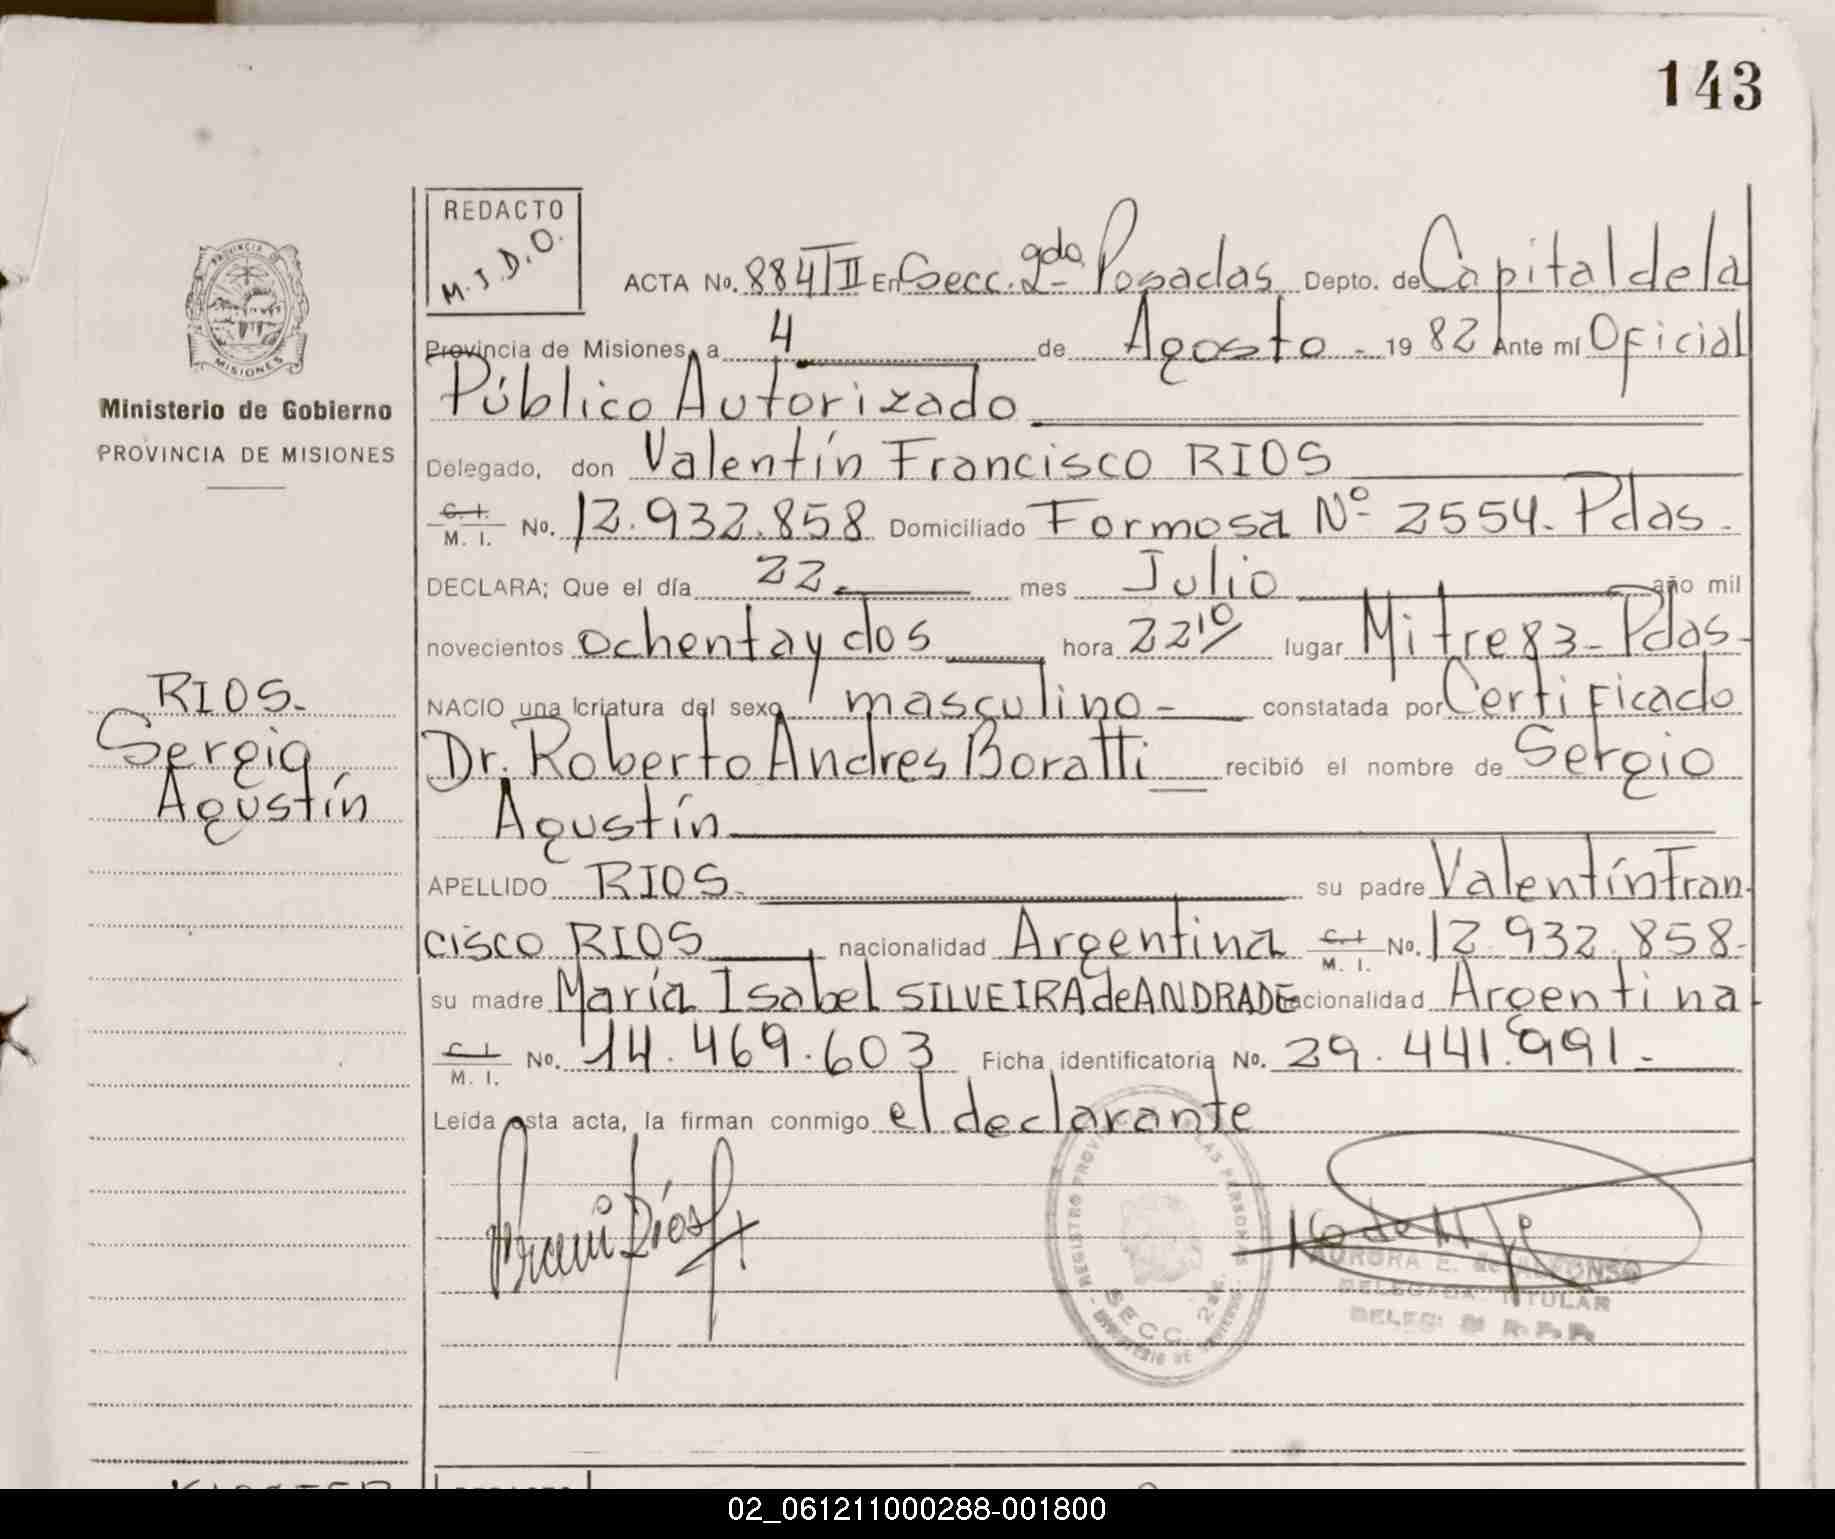 143
REDACTO
M.J.D.O.
ACTA No. 884/II En Secc. 2gda Posadas Depto. de Capital de la
Provincia de Misiones, a 4 de Agosto - 1982 Ante mi Oficial
Público Autorizado
Ministerio de Gobierno
PROVINCIA DE MISIONES
Delegado, don Valentín Francisco RIOS
C. I. M. I. No. 12.932.858 Domiciliado Formosa Nº 2554. Pdas.
DECLARA; Que el día 22 mes Julio año mil
novecientos ochenta y dos hora 22 10/ lugar Mitre 83 - Pdas -
RIOS.
Sergio
Agustín
NACIO una criatura del sexo masculino - constatada por Certificado
Dr. Roberto Andres Boratti recibió el nombre de Sergio
Agustín
APELLIDO RIOS. su padre Valentín Fran-
cisco RIOS nacionalidad Argentina C. I. M. I. No. 12.932.858-
su madre María Isabel SILVEIRA de ANDRADE nacionalidad Argentina
C. I. M. I. No. 14.469.603 Ficha identificatoria No. 29.441.991.-
Leída esta acta, la firman conmigo el declarante
Ríos
REGISTRO PROVINCIAL LAS PERSONAS
SECC. 2da.
AURORA E. de ALFONSO
DELEGADA TITULAR
DELEG. R. P. P.
02_061211000288-001800